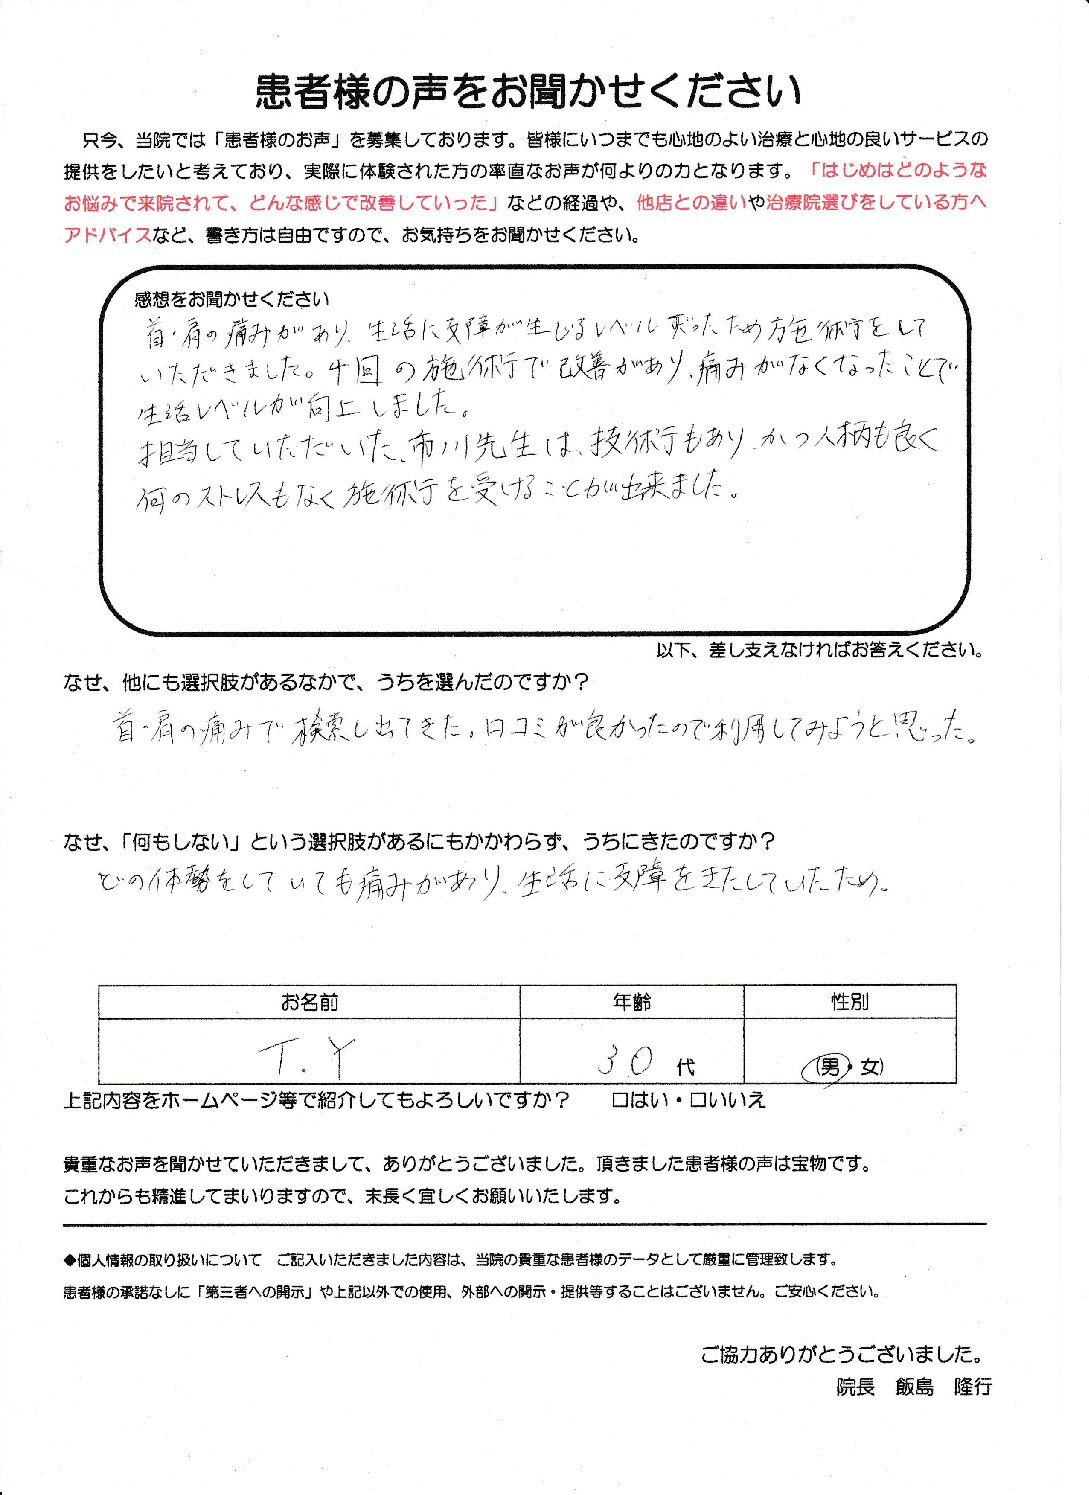 患者様の声をお聞かせください
只今、当院では「患者様のお声」を募集しております。皆様にいつまでも心地のよい治療と心地の良いサービスの
提供をしたいと考えており、実際に体験された方の率直なお声が何よりの力となります。「はじめはどのような
お悩みで来院されて、どんな感じで改善していった」などの経過や、他店との違いや治療院選びをしている方へ
アドバイスなど、書き方は自由ですので、お気持ちをお聞かせください。
感想をお聞かせください
首・肩の痛みがあり、生活に支障が生じるレベルだったため施術をして
いただきました。十回の施術で改善があり、痛みがなくなったことで
生活レベルが向上しました。
担当していただいた、市川先生は、技術もあり、かつ人柄も良く
何のストレスもなく施術を受けることが出来ました。
以下、差し支えなければお答えください。
なぜ、他にも選択肢があるなかで、うちを選んだのですか？
首・肩の痛みで検索し出てきた。口コミが良かったので利用してみようと思った。
なぜ、「何もしない」という選択肢があるにもかかわらず、うちにきたのですか？
どの体勢をしていても痛みがあり、生活に支障をきたしていたため。
お名前 年齢 性別
T.Y 30代 (男・女)
上記内容をホームページ等で紹介してもよろしいですか？ 口はい・口いいえ
貴重なお声を聞かせていただきまして、ありがとうございました。頂きました患者様の声は宝物です。
これからも精進してまいりますので、末長く宜しくお願いいたします。
◆個人情報の取り扱いについて ご記入いただきました内容は、当院の貴重な患者様のデータとして厳重に管理致します。
患者様の承諾なしに「第三者への開示」や上記以外での使用、外部への開示・提供等することはございません。ご安心ください。
ご協力ありがとうございました。
院長 飯島 隆行